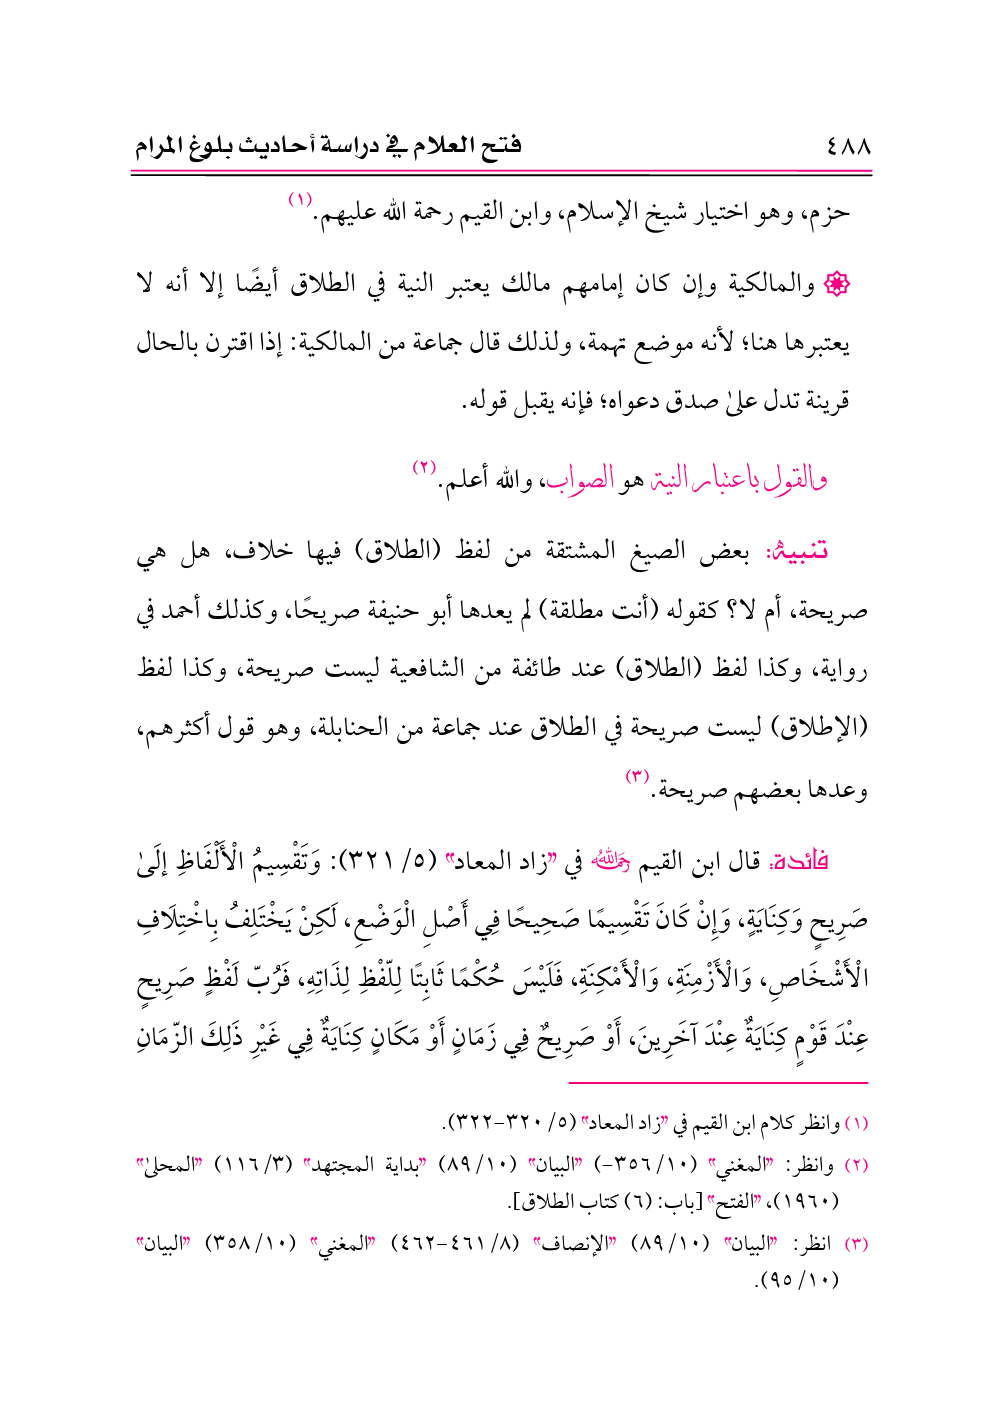 ٤٨٨ فتح العلام في دراسة أحاديث بلوغ المرام
حزم، وهو اختيار شيخ الإسلام، وابن القيم رحمة الله عليهم.(١)
والمالكية وإن كان إمامهم مالك يعتبر النية في الطلاق أيضًا إلا أنه لا
يعتبرها هنا؛ لأنه موضع تهمة، ولذلك قال جماعة من المالكية: إذا اقترن بالحال
قرينة تدل علىٰ صدق دعواه؛ فإنه يقبل قوله.
والقول باعتبار النية هو الصواب، والله أعلم.(٢)
تنبيهٌ: بعض الصيغ المشتقة من لفظ (الطلاق) فيها خلاف، هل هي
صريحة، أم لا؟ كقوله (أنت مطلقة) لم يعدها أبو حنيفة صريحًا، وكذلك أحمد في
رواية، وكذا لفظ (الطلاق) عند طائفة من الشافعية ليست صريحة، وكذا لفظ
(الإطلاق) ليست صريحة في الطلاق عند جماعة من الحنابلة، وهو قول أكثرهم،
وعدها بعضهم صريحة.(٣)
فائدة: قال ابن القيم رحمه الله في "زاد المعاد" (٥/ ٣٢١): وَتَقْسِيمُ الْأَلْفَاظِ إلَىٰ
صَرِيحٍ وَكِنَايَةٍ، وَإِنْ كَانَ تَقْسِيمًا صَحِيحًا فِي أَصْلِ الْوَضْعِ، لَكِنْ يَخْتَلِفُ بِاخْتِلَافِ
الْأَشْخَاصِ، وَالْأَزْمِنَةِ، وَالْأَمْكِنَةِ، فَلَيْسَ حُكْمًا ثَابِتًا لِلّفْظِ لِذَاتِهِ، فَرُبّ لَفْظٍ صَرِيحٍ
عِنْدَ قَوْمٍ كِنَايَةٌ عِنْدَ آخَرِينَ، أَوْ صَرِيحٌ فِي زَمَانٍ أَوْ مَكَانٍ كِنَايَةٌ فِي غَيْرِ ذَلِكَ الزّمَانِ
(١) وانظر كلام ابن القيم في "زاد المعاد" (٥/ ٣٢٠-٣٢٢).
(٢) وانظر: "المغني" (١٠/ ٣٥٦-) "البيان" (١٠/ ٨٩) "بداية المجتهد" (٣/ ١١٦) "المحلىٰ"
(١٩٦٠)، "الفتح" [باب: (٦) كتاب الطلاق].
(٣) انظر: "البيان" (١٠/ ٨٩) "الإنصاف" (٨/ ٤٦١-٤٦٢) "المغني" (١٠/ ٣٥٨) "البيان"
(١٠/ ٩٥).